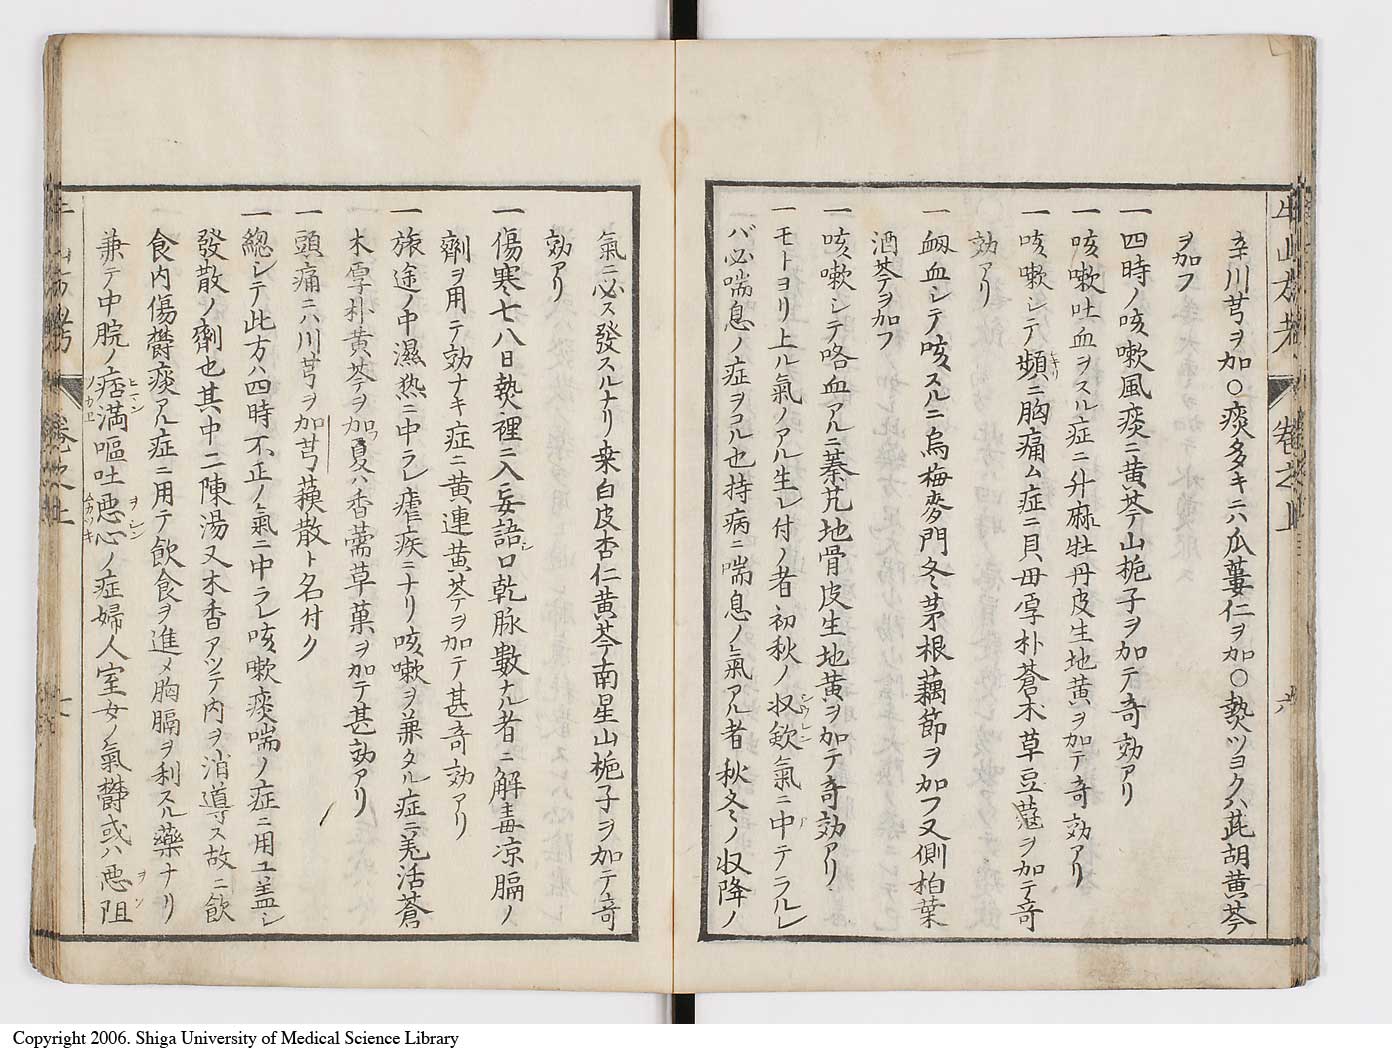 牛山方考 卷之上 六
辛川芎ヲ加○痰多キニハ瓜蔞仁ヲ加○熱ツヨクハ茈胡黄芩
ヲ加フ
一四時ノ咳嗽風痰ニ黄芩山梔子ヲ加テ奇効アリ
一咳嗽吐血ヲスル症ニ升麻牡丹皮生地黄ヲ加テ奇効アリ
一咳嗽シテ頻ニ胸痛ム症ニ貝母厚朴蒼朮草豆蔻ヲ加テ奇
効アリ
一衂血シテ咳スルニ烏梅麥門冬茅根藕節ヲ加フ又側柏葉
酒芩ヲ加フ
一咳嗽シテ咯血アルニ蓁艽地骨皮生地黄ヲ加テ奇効アリ
一モトヨリ上ル氣ノアル生レ付ノ者初秋ノ収斂氣ニ中テラルレ
バ必喘息ノ症ヲコル也持病ニ喘息ノ氣アル者秋冬ノ収降ノ
氣ニ必ス發スルナリ桒白皮杏仁黄芩南星山梔子ヲ加テ奇
効アリ
一傷寒七八日熱裡ニ入妄語シ口乾脉數ナル者ニ解毒凉膈ノ
劑ヲ用テ効ナキ症ニ黄連黄芩ヲ加テ甚奇効アリ
一旅途ノ中濕熱ニ中ラレ瘧疾ニナリ咳嗽ヲ兼タル症ニ羌活蒼
木厚朴黄芩ヲ加ヘ夏ハ香薷草菓ヲ加テ甚効アリ
一頭痛ニハ川芎ヲ加芎蘓散ト名付ク
一總シテ此方ハ四時不正ノ氣ニ中ラレ咳嗽痰喘ノ症ニ用ユ盖シ
發散ノ劑也其中二陳湯又木香アツテ内ヲ消導ス故ニ飲
食内傷欝痰アル症ニ用テ飲食ヲ進メ胸膈ヲ利スル藥ナリ
兼テ中脘ノ痞満嘔吐悪心ノ症婦人室女ノ氣欝或ハ悪阻
牛山方考 卷之上 七
Copyright 2006. Shiga University of Medical Science Library